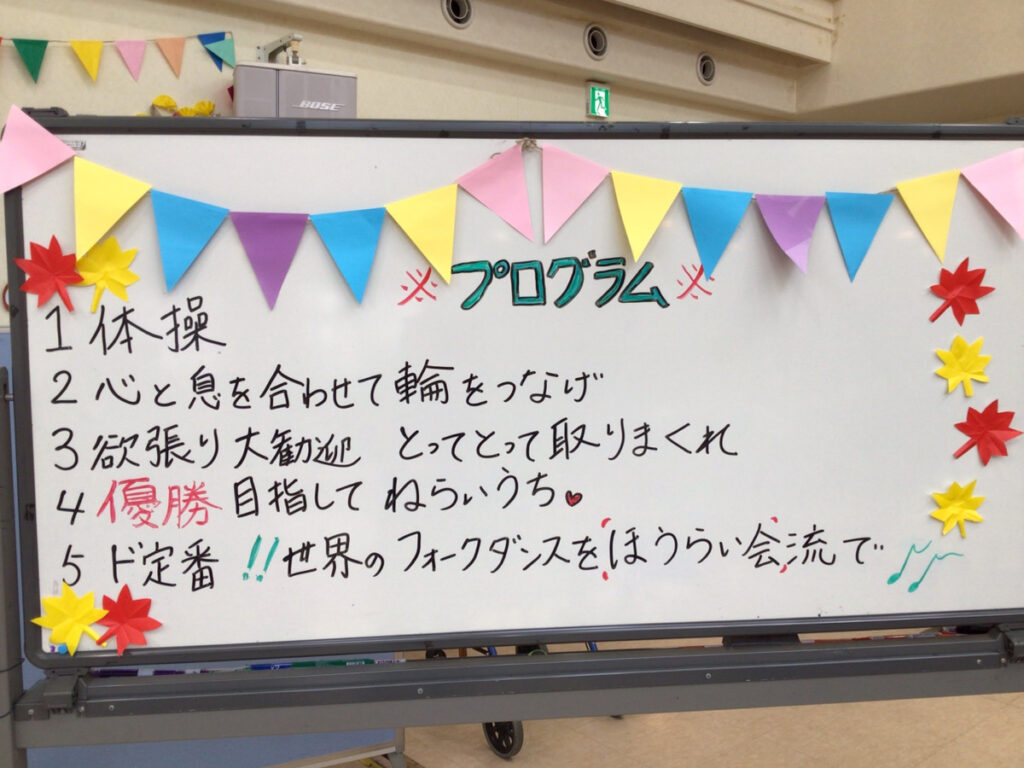 BOSE
※ プログラム ※
1 体操
2 心と息を合わせて輪をつなげ
3 欲張り大歓迎 とってとって取りまくれ
4 優勝目指して ねらいうち♥
5 ド定番!!世界のフォークダンスをほうらい会流で♪♫